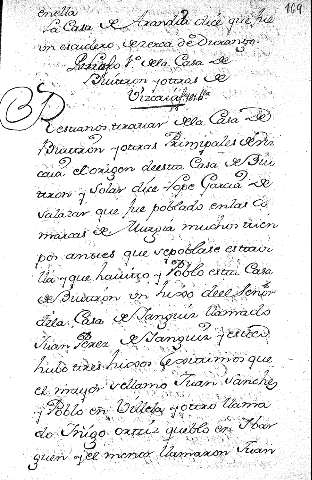 164
en ella
La Casa de Arandia dice que fue
un escudero de zerca de Durango.
de la Casa de
Buitron y otras de
Vizcaia
Restanos tratar de la Casa de
Buitron y otras Principales de Viz
caia el origen de esta Casa de Bui
tron y Solar dice Lope Garcia de
Salazar que fue poblado en las Co
marcas de Mungia mucho tiem
po antes que se poblase esta vi
lla y que la hizo y Poblo esta Casa
de Buitron un hixo de el Señor
de la Casa de Sanguin llamado
Juan Perez de Sanguin y este
hubo tres hixos lexitimos que
el mayor se llamo Juan Sanchez
y Poblo en Villela y otro llama
do Iñigo Ortiz que blo en Ibar
guen y el menor llamaron Juan